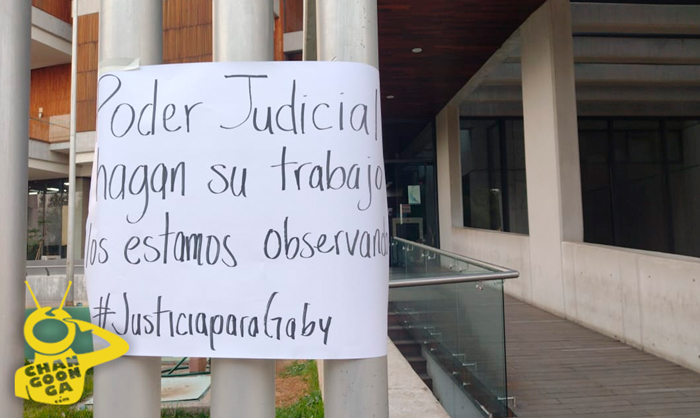 Poder Judicial
hagan su trabajo
los estamos observando
#JusticiaparaGaby
CHAN
GOON
GA
.com